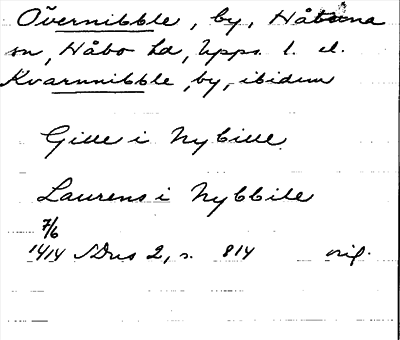 Övernibble, by, Håtuna
sn, Håbo hd, Upps. l. el.
Kvarnnibble, by, ibidem
Gille i Nybille
Laurens i Nybbile
7/6
1414 SDns 2, s. 814 orig.